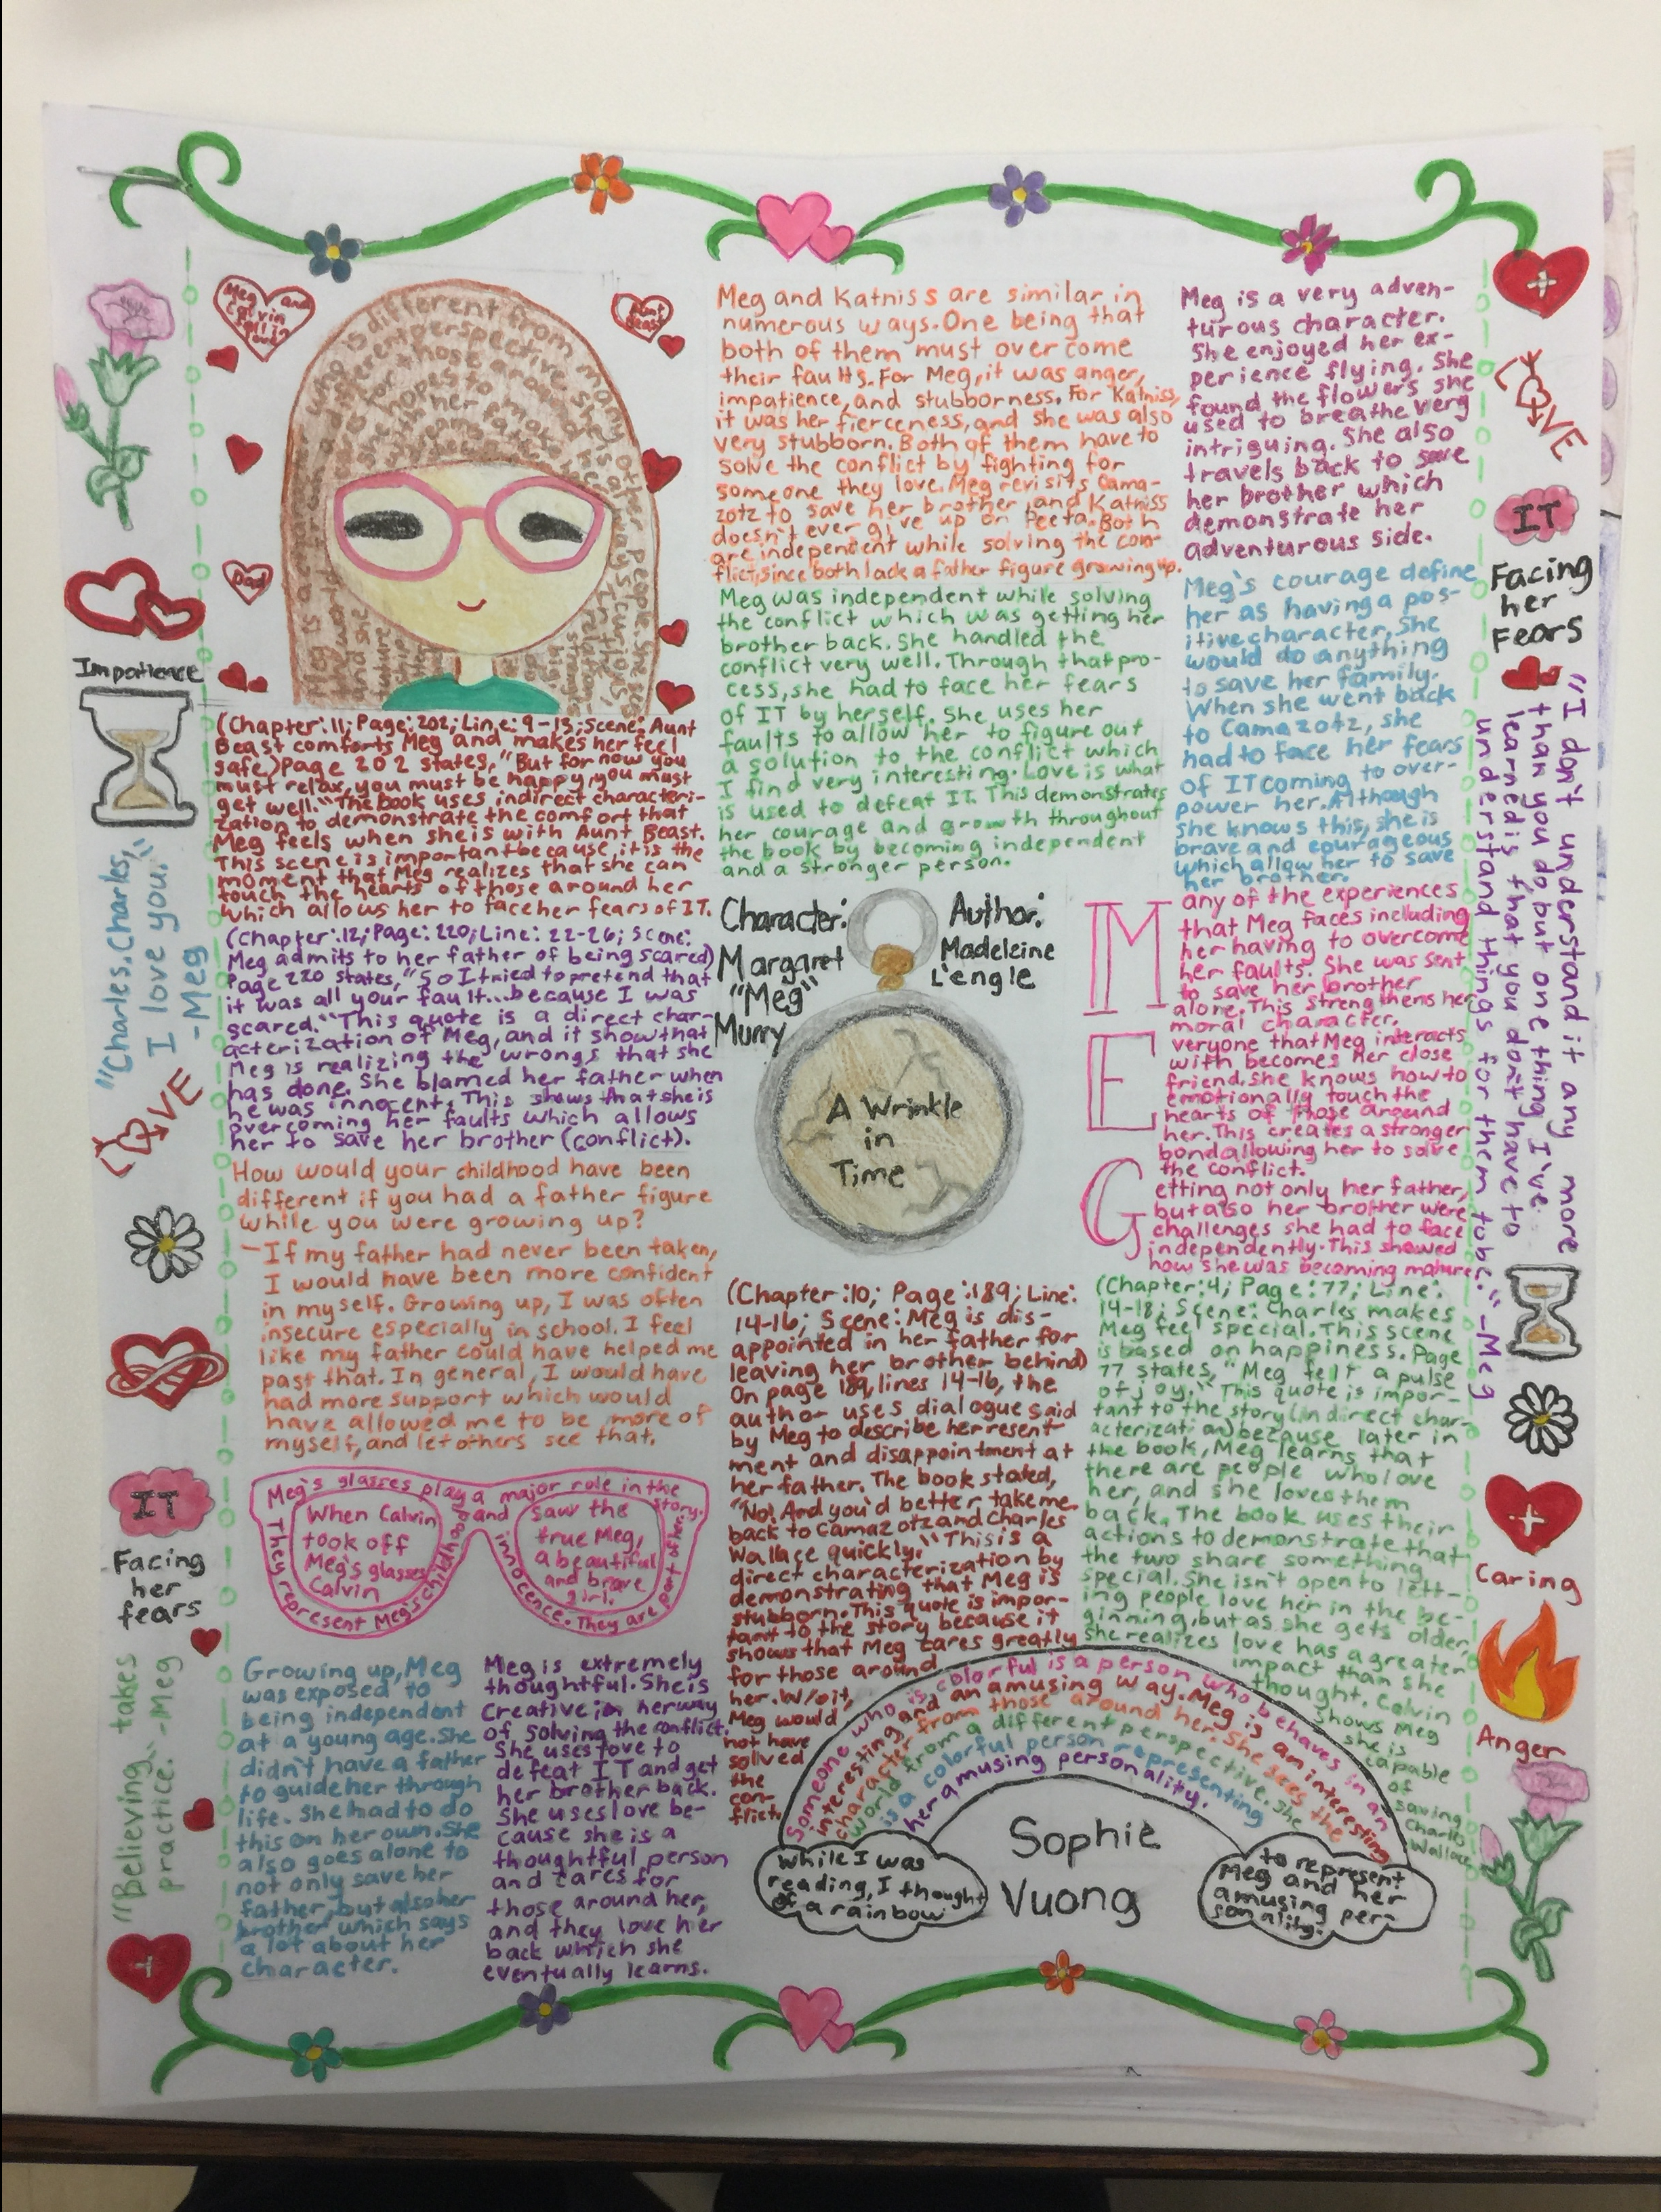 Meg and
Calvin
fall in
love
Aunt
Beast
Dad
who is different from many other people. She
different perspective
for those around
she hopes to make
Impatience
"Charles, Charles,
I love you."
-Meg
LOVE
IT
Facing
her
fears
"Believing takes
practice." -Meg
(Chapter: 11; Page: 202; Line: 9-13; Scene: Aunt
Beast comforts Meg and makes her feel
safe) Page 202 states, "But for now you
must relax, you must be happy, you must
get well." The book uses indirect characteri-
zation to demonstrate the comfort that
Meg feels when she is with Aunt Beast.
This scene is important because it is the
moment that Meg realizes that she can
touch the hearts of those around her
which allows her to face her fears of IT.
(Chapter: 12; Page: 220; Line: 22-26; Scene:
Meg admits to her father of being scared)
Page 220 states, "So I tried to pretend that
it was all your fault...because I was
scared." This quote is a direct char-
acterization of Meg, and it show that
Meg is realizing the wrongs that she
has done. She blamed her father when
he was innocent. This shows that she is
overcoming her faults which allows
her to save her brother (conflict).
How would your childhood have been
different if you had a father figure
while you were growing up?
-If my father had never been taken,
I would have been more confident
in myself. Growing up, I was often
insecure especially in school. I feel
like my father could have helped me
past that. In general, I would have
had more support which would
have allowed me to be more of
myself, and let others see that.
Meg's glasses play a major role in the story.
They represent Meg's childhood and innocence. They are part of her.
When Calvin
took off
Meg's glasses
Calvin
saw the
true Meg,
a beautiful
and brave
girl.
Growing up, Meg
was exposed to
being independent
at a young age. She
didn't have a father
to guide her through
life. She had to do
this on her own. She
also goes alone to
not only save her
father, but also her
brother which says
a lot about her
character.
Meg is extremely
thoughtful. She is
creative in her way
of solving the conflict.
She uses love to
defeat IT and get
her brother back.
She uses love be-
cause she is a
thoughtful person
and cares for
those around her,
and they love her
back which she
eventually learns.
Meg and Katniss are similar in
numerous ways. One being that
both of them must overcome
their faults. For Meg, it was anger,
impatience, and stubborness. For Katniss,
it was her fierceness, and she was also
very stubborn. Both of them have to
solve the conflict by fighting for
someone they love. Meg revisits Cama-
zotz to save her brother, and Katniss
doesn't ever give up on Peeta. Both
are independent while solving the con-
flict, since both lack a father figure growing up.
Meg was independent while solving
the conflict which was getting her
brother back. She handled the
conflict very well. Through that pro-
cess, she had to face her fears
of IT by herself. She uses her
faults to allow her to figure out
a solution to the conflict which
I find very interesting. Love is what
is used to defeat IT. This demonstrates
her courage and growth throughout
the book by becoming independent
and a stronger person.
Character:
Margaret
"Meg"
Murry
Author:
Madeleine
L'engle
A Wrinkle
in
Time
(Chapter: 10; Page: 189; Line:
14-16; Scene: Meg is dis-
appointed in her father for
leaving her brother behind)
On page 189, lines 14-16, the
author uses dialogue said
by Meg to describe her resent
ment and disappointment at
her father. The book stated,
"No! And you'd better take me
back to Camazotz and Charles
Wallace quickly." This is a
direct characterization by
demonstrating that Meg is
stubborn. This quote is impor-
tant to the story because it
shows that Meg cares greatly
for those around
her. W/o it,
Meg would
not have
solved
the
con-
flict.
Meg is a very adven-
turous character.
She enjoyed her ex-
perience flying. She
found the flowers she
used to breathe very
intriguing. She also
travels back to save
her brother which
demonstrate her
adventurous side.
Meg's courage define
her as having a pos-
itive character. She
would do anything
to save her family.
When she went back
to Camazotz, she
had to face her fears
of IT coming to over-
power her. Although
she knows this, she is
brave and courageous
which allow her to save
her brother.
Many of the experiences
that Meg faces including
her having to overcome
her faults. She was sent
to save her brother
alone. This strengthens her
moral character.
Everyone that Meg interacts
with becomes her close
friend. She knows how to
emotionally touch the
hearts of those around
her. This creates a stronger
bond allowing her to solve
the conflict.
Getting not only her father,
but also her brother were
challenges she had to face
independently. This showed
how she was becoming mature.
(Chapter: 4; Page: 77; Line:
14-18; Scene: Charles makes
Meg feel special. This scene
is based on happiness. Page
77 states, "Meg felt a pulse
of joy." This quote is impor-
tant to the story (indirect char-
acterization) because later in
the book, Meg learns that
there are people who love
her, and she loves them
back. The book uses their
actions to demonstrate that
the two share something
special. She isn't open to lett-
ing people love her in the be-
ginning, but as she gets older,
she realizes love has a greater
impact than she
thought. Calvin
shows Meg
she is
capable
of
saving
Charles
Wallace.
Someone who is colorful is a person who behaves in an
interesting and an amusing way. Meg is an interesting
character from those around her. She sees the
world from a different perspective. She
is a colorful person representing
her amusing personality.
While I was
reading, I thought
of a rainbow
to represent
Meg and her
amusing per-
sonality.
Sophie
Vuong
LOVE
IT
Facing
her
Fears
"I don't understand it any more
than you do, but one thing I've
learned is that you don't have to
understand things for them to be." -Meg
Caring
Anger